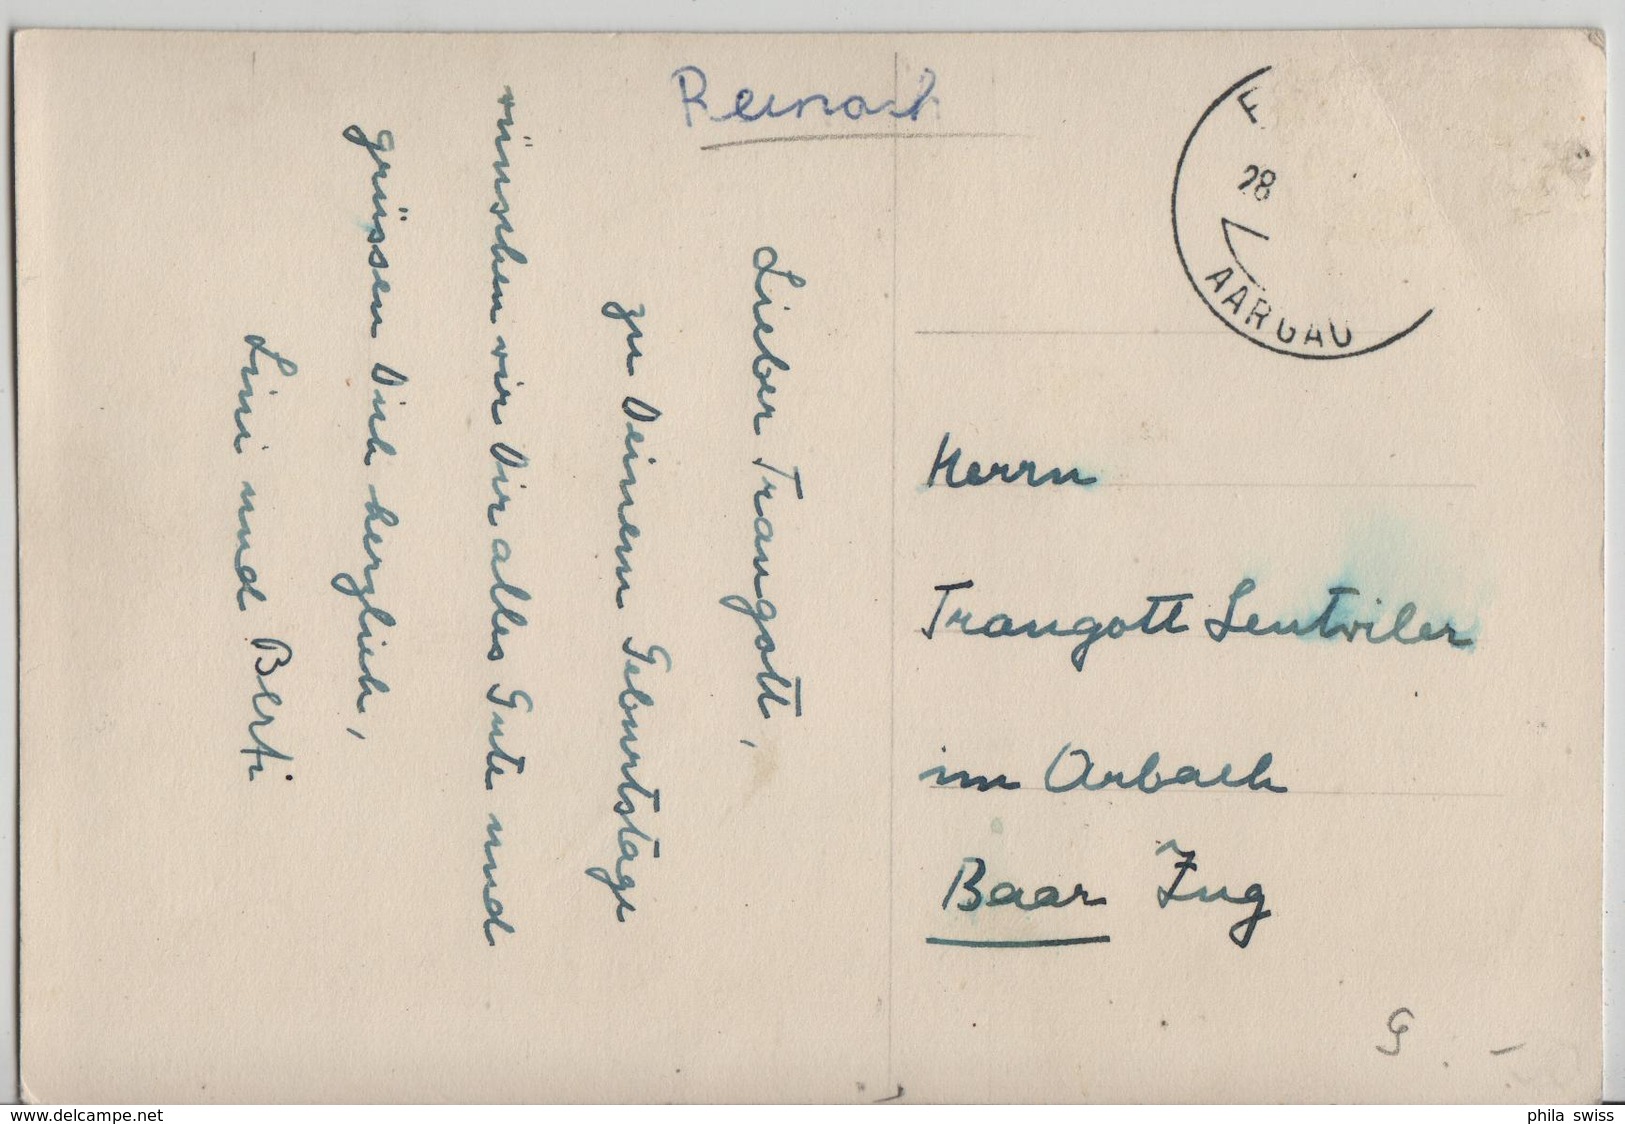 Reinach
Lieber Traugott,
zu Deinem Geburtstage
wünschen wir Dir alles Gute und
grüssen Dich herzlich,
Lini und Berti
28
AARGAU
Herrn
Traugott Leutwiler
im Arbach
Baar Zug
www.delcampe.net
phila swiss